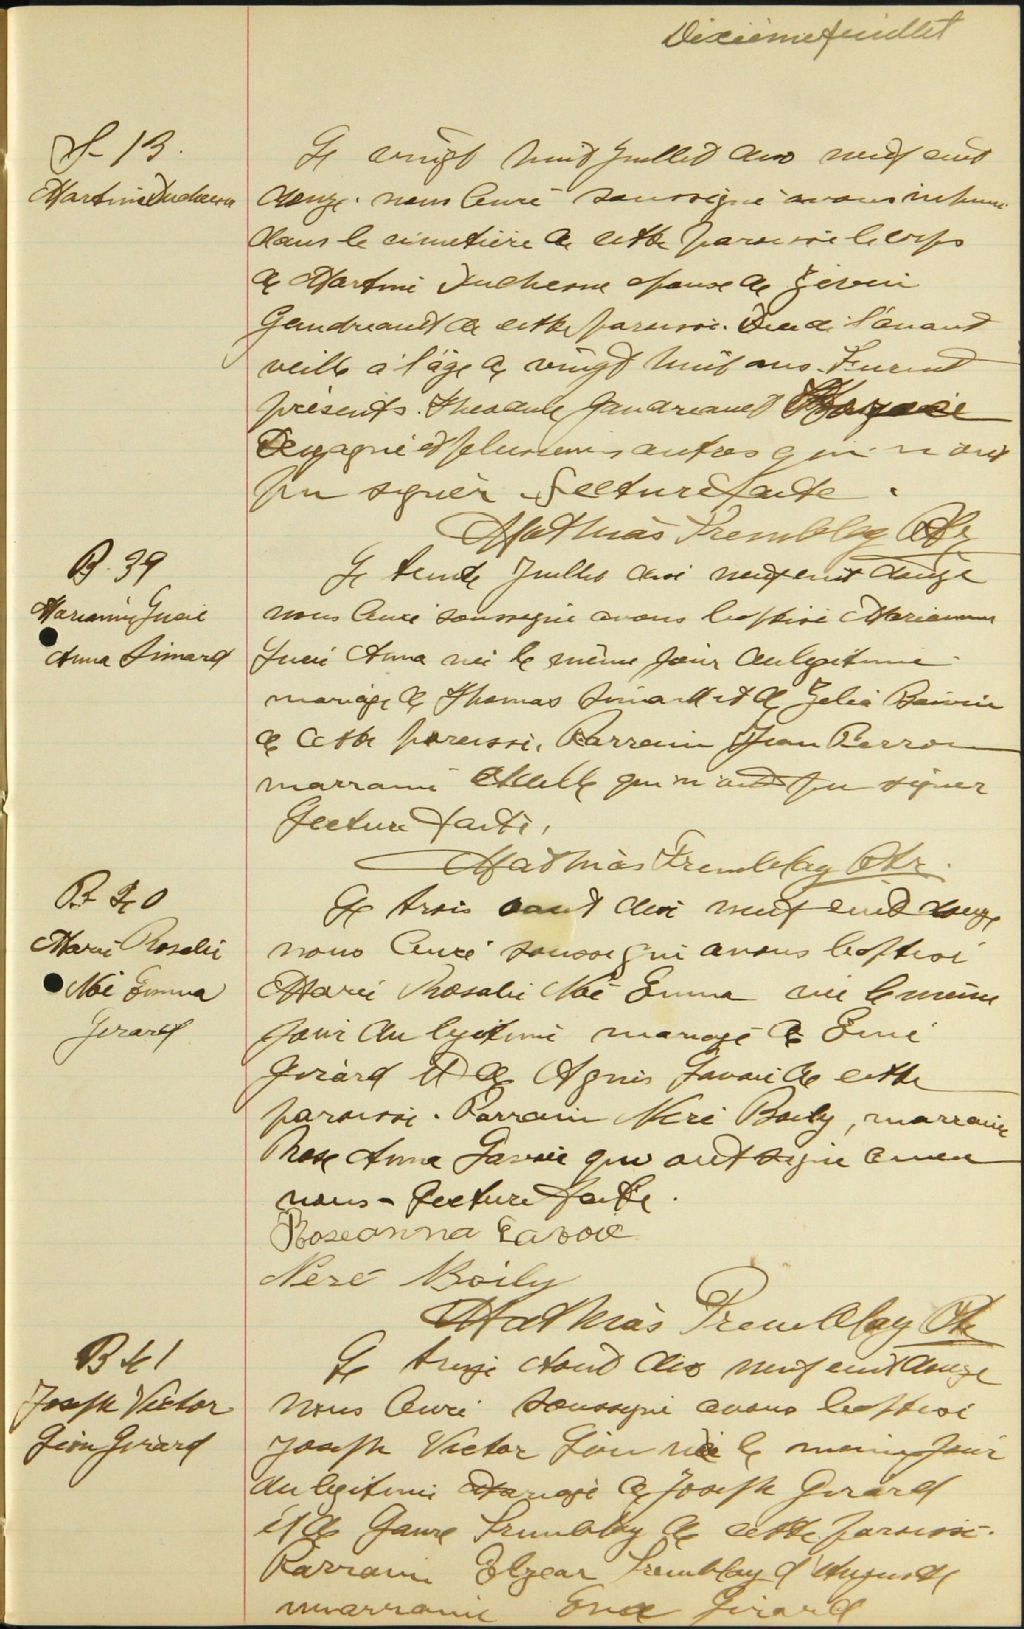 Dixième feuillet
S- 13.
Martine Duchesne
Le vingt huit Juillet dix neuf cent
douze. nous Curé soussigné avons inhumé
dans le cimetière de cette paroisse le corps
de Martine Duchesne épouse de
Gaudreault de cette paroisse. Décédé l'avant
veille à l'âge de vingt huit ans. Furent
présents. Gaudreault
Degagné et plusieurs autres qui n'ont
pu signer. Lecture faite.
Mathias Tremblay Ptr
B. 39
Marianne Lucie
Anna Simard
Le trente Juillet dix neuf cent douze
nous Curé soussigné avons baptisé Marianne
Lucie Anna née le même jour du légitime
mariage de Thomas Simard et de Zelia Boivin
de cette paroisse. Parrain Jean Perron
marraine qui n'ont pu signer
Lecture faite.
Mathias Tremblay Ptr.
B 40
Marie Rosalie
Noé Emma
Girard
Le trois aout dix neuf cent douze
nous Curé soussigné avons baptisé
Marie Rosalie Noé Emma née le même
jour du légitime mariage de
Girard et de Agnès Savoie de cette
paroisse. Parrain Néré Boily, marraine
Rose Anna Savoie qui ont signé avec
nous - Lecture faite.
Roseanna Savoie
Néré Boily
Mathias Tremblay Ptr
B 41
Joseph Victor
Léon Girard
Le treize Aout dix neuf cent douze
nous Curé soussigné avons baptisé
Joseph Victor Léon né le même jour
du légitime Mariage de Joseph Girard
et de Laure Tremblay de cette paroisse.
Parrain Elzear Tremblay d'Auguste
marraine Girard